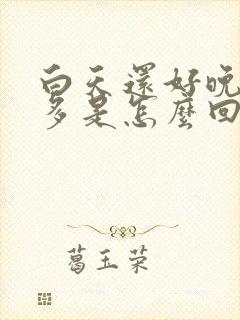 白天還好晚
多是怎麼回
葛玉荣